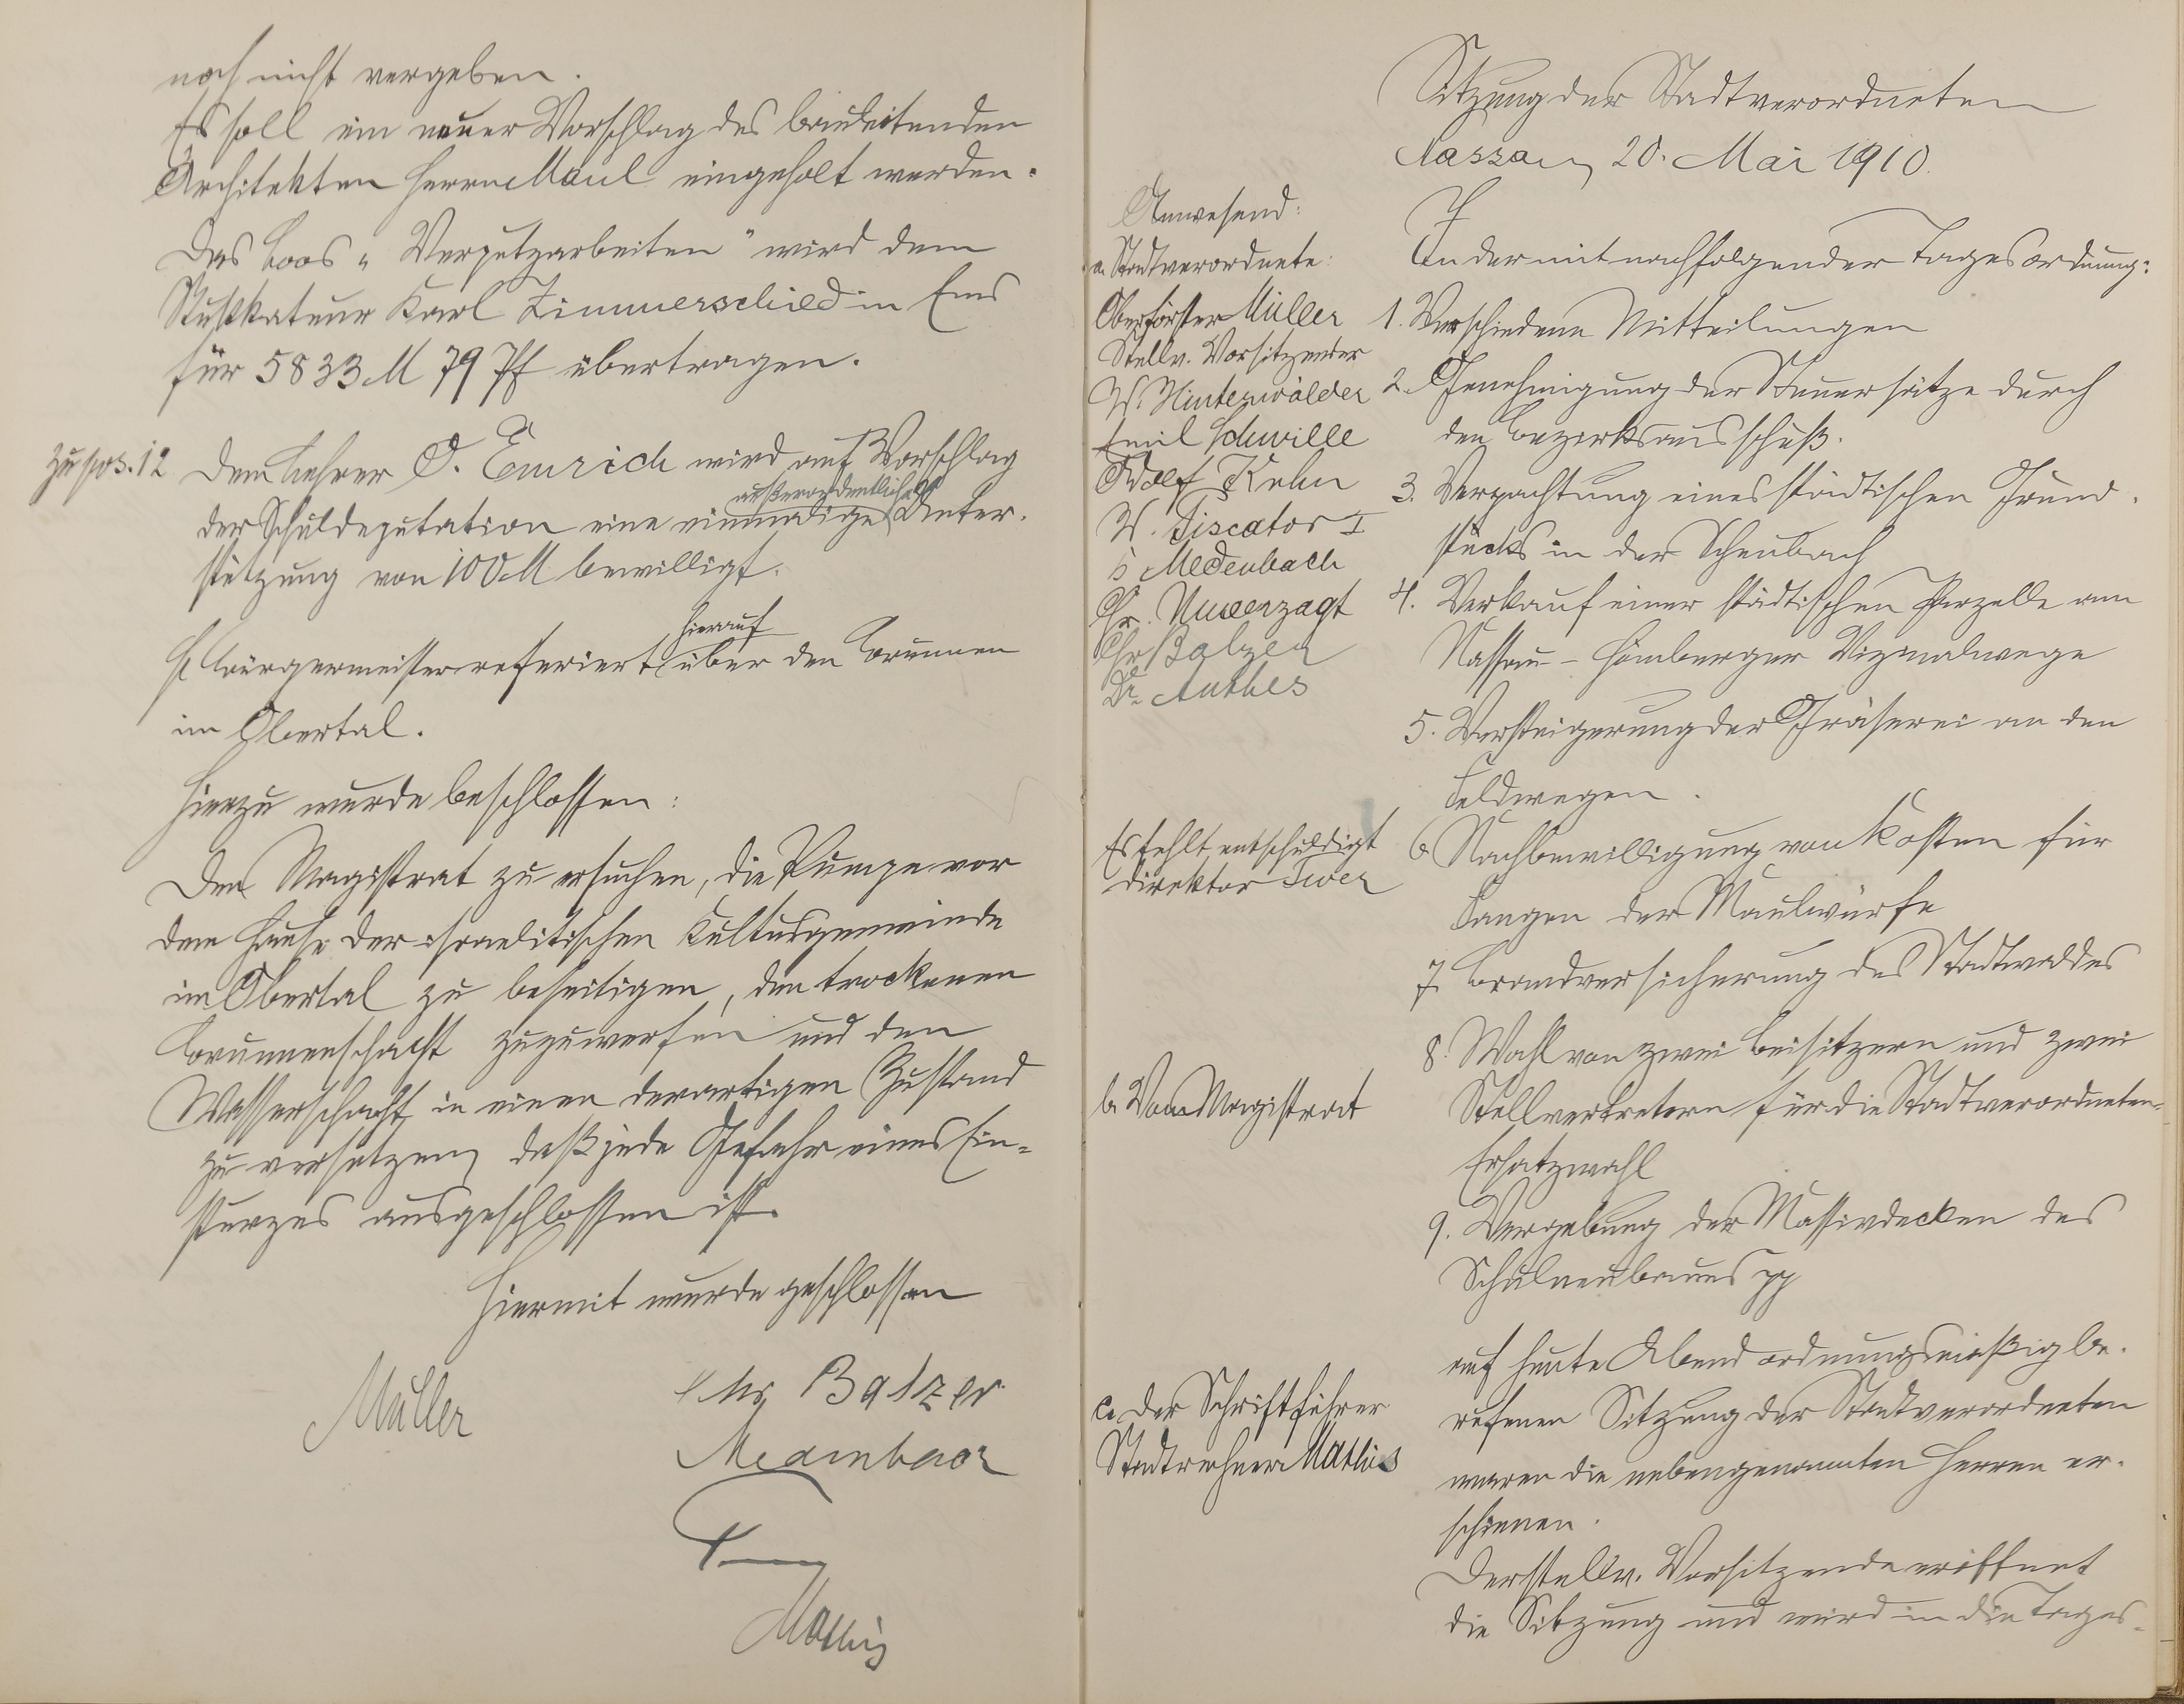 noch nicht vergeben.
Es soll ein neuer Vorschlag des bauleitenden
Architekten Herrn Maul eingeholt werden.
Das Loos „Verputzarbeiten" wird dem
Stukkateur Karl Zimmerschied in Ems
für 5833 M 79 Pf übertragen.
zu pos. 12 Dem Lehrer O. Emrich wird auf Vorschlag
außerordentliche
der Schuldeputation eine einmalige Unter-
stützung von 100 M bewilligt.
hierauf
H Bürgermeister referiert über den Brunnen
im Obertal.
Hierzu wurde beschlossen:
Den Magistrat zu ersuchen, die Pumpe vor
dem Hause der israelitischen Kultusgemeinde
im Obertal zu beseitigen, den trockenen
Brunnenschacht zuzuwerfen und den
Wasserschacht in einen derartigen Zustand
zu versetzen, daß jede Gefahr eines Ein-
sturzes ausgeschlossen ist.
Hiermit wurde geschlossen
Müller
Chr Balzer
Medenbach
Mathis
Sitzung der Stadtverordneten
Nassau, 20. Mai 1910.
Anwesend:
a. Stadtverordnete:
Oberförster Müller
Stellv. Vorsitzender
W. Hinterwälder
Emil Schwille
Adolf Kuhn
W. Piscator I
Medenbach
Chr. Unverzagt
Chr Balzer
Dr. Anthes
Es fehlt entschuldigt
Direktor
b. Vom Magistrat
c. Der Schriftführer
Stadtrechner Mathis
In der mit nachfolgender Tagesordnung:
1. Verschiedene Mitteilungen
2. Genehmigung der Steuersätze durch
den Bezirksausschuß.
3. Verpachtung eines städtischen Grund-
stücks in der Scheubach
4. Verkauf einer städtischen Parzelle am
Nassau-Hömberger Vizinalwege
5. Versteigerung der Gräserei an den
Feldwegen.
6 Nachbewilligung von Kosten für
Fangen der Maulwürfe
7. Brandversicherung des Stadtwaldes
8. Wahl von zwei Beisitzern und zwei
Stellvertretern für die Stadtverordneten-
Ersatzwahl
9. Vergebung der Massivdecken des
Schulneubaues pp
auf heute Abend ordnungsmäßig be-
rufenen Sitzung der Stadtverordneten
waren die nebengenannten Herren er-
schienen.
Der stellv. Vorsitzende eröffnet
die Sitzung und wird in die Tages-